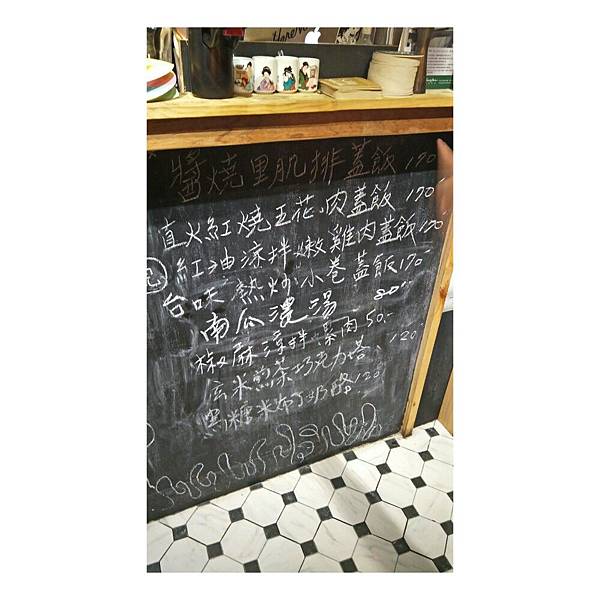 醬燒里肌排蓋飯 170
直火紅燒五花肉蓋飯 170
紅油涼拌嫩雞肉蓋飯 120
台味熱炒小卷蓋飯 170
南瓜濃湯 80.-
椒麻涼拌素肉 50.-
玄米煎茶巧克力塔 120.
黑糖米布丁奶酪 120